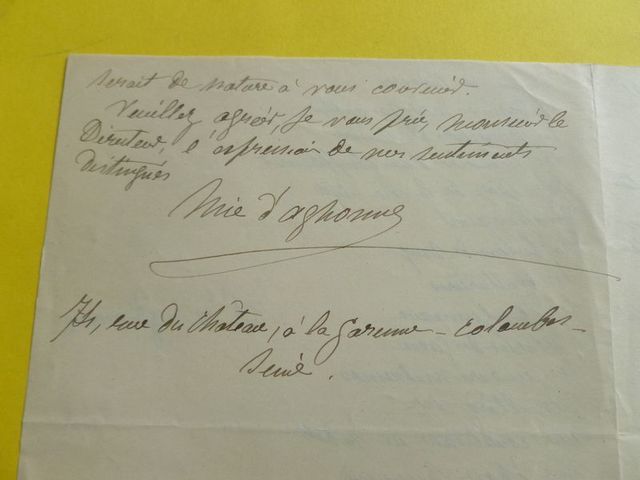 serait de nature à vous convenir.
Veuillez agréer, je vous prie, monsieur le
Directeur, l'expression de mes sentiments
distingués
Mie d'aghonne
rue du château, à la Garenne-colombes-
seine.